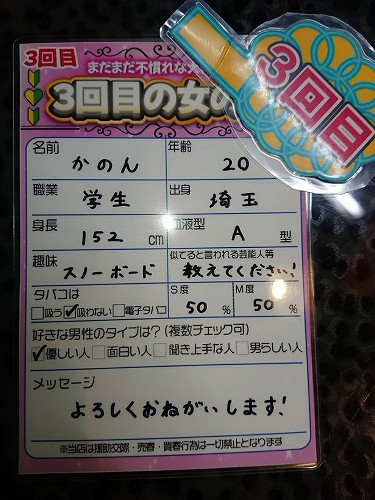 3回目
まだまだ不慣れな
3回目の女の
3回目
名前 かのん
年齢 20
職業 学生
出身 埼玉
身長 152cm
血液型 A型
趣味 スノーボード
似てると言われる芸能人等 教えてください!
タバコは
□吸う ☑吸わない □電子タバコ
S度 50%
M度 50%
好きな男性のタイプは?(複数チェック可)
☑優しい人 □面白い人 □聞き上手な人 □男らしい人
メッセージ
よろしくおねがいします!
※当店は援助交際・売春・買春行為は一切禁止となります